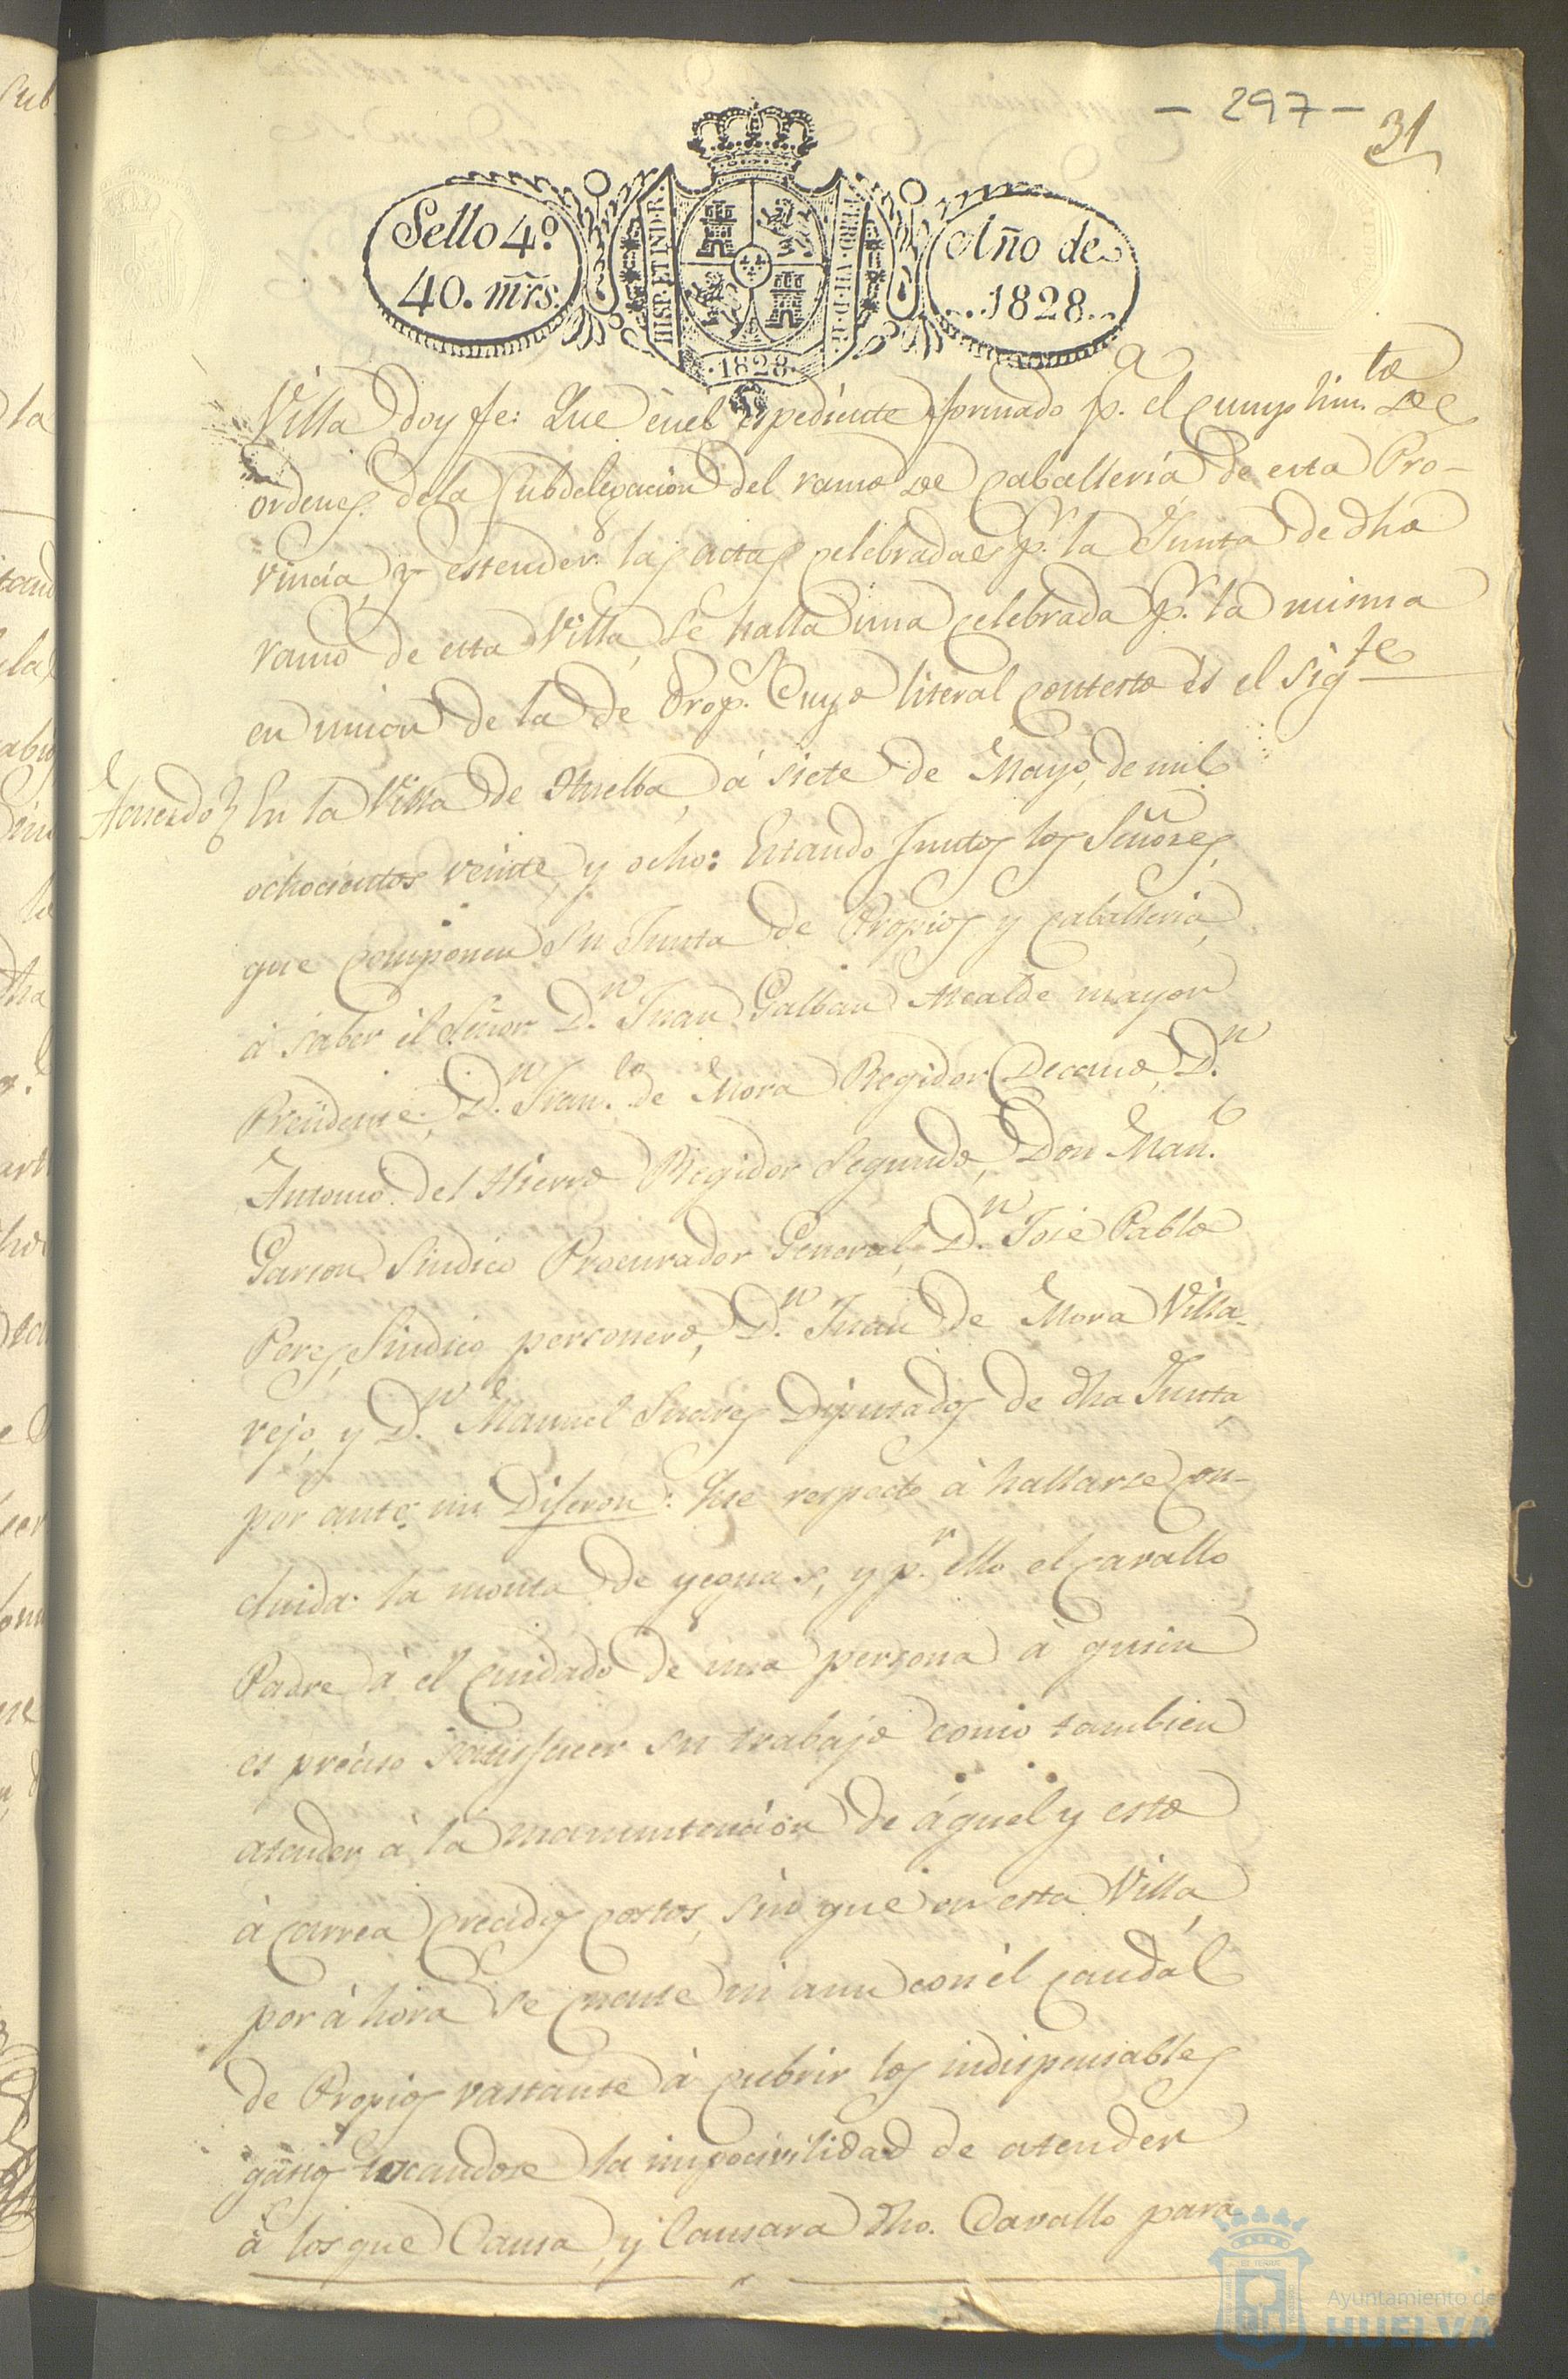 - 297 -
31
Sello 4º
40. mrs.
HISP. ET IND. R.
Año de
1828
1828
Villa doy fe: Que enel espediente formado pª. el cumplimto. de
ordenes dela Subdelegacion del ramo de Caballeria de esta Pro-
vincia, y estender las actas celebradas pr. la Junta de dho
ramo de esta Villa, se halla una celebrada pr. la misma
en union de la de Props. Cuyo literal contesto és el sigte
Acuerdo
En la Villa de Huelba, á siete de Mayo, de mil
ochocientos veinte, y ocho: Estando Juntos los Señores,
que componen su Junta de Propios y Caballeria,
á saber el Señor Dn. Juan Galban Alcalde mayor
Presidente, Dn. Franco. de Mora Regidor Decano, Dn.
Antonio del Hierro Regidor Segundo, Don Manl.
Garzon Sindico Procurador General, Dn. José Pablo
Peres, Sindico personero, Dn. Juan de Mora Villa-
rejo, y Dn. Manuel Suares Diputados de dha Junta
por ante mi Diseron: Que respecto á hallarse con-
cluida la monta de yeguas, y pr. ello el Cavallo
Padre á el Cuidado de una persona á quien
es preciso satisfacer su trabajo como tambien
atender á la manutencion de áquel y esto
á Carrea Crecidos Costos, sin que en esta Villa
por áhora se cuente ni aun con él caudál
de Propios vastante á cubrir los indispensables
gastos tocandose la imposivilidad de atender
á los que Causa, y Causara dho. Cavallo para
Ayuntamiento de
HUELVA